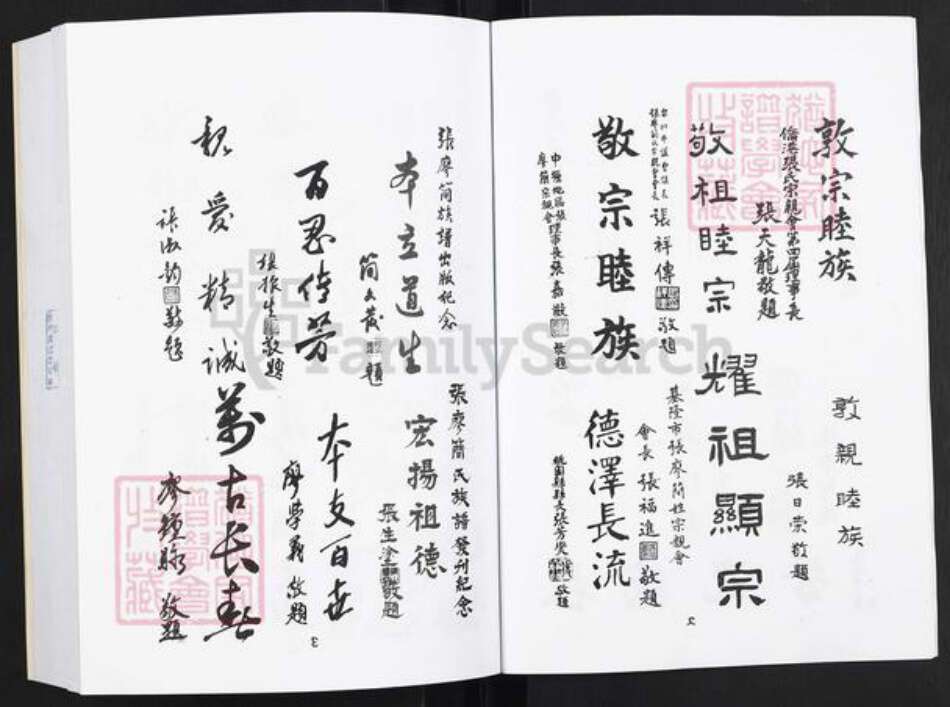 敦宗睦族
僑港張氏宗親會第四屆理事長
張天龍敬題
敦親睦族
張日崇敬題
敬祖睦宗
張祥傳敬題
耀祖顯宗
基隆市張廖簡姓宗親會
會長張福進敬題
敬宗睦族
中壢地區張
廖簡宗親會理事長張嘉敬題
德澤長流
桃園縣縣長張芳燮敬題
張廖簡族譜出版紀念
本立道生
簡文發題
張廖簡氏族譜發刊紀念
宏揚祖德
張生塗敬題
百忍傳芳
張振生敬題
本支百世
廖學義敬題
親愛精誠
張淑鈞敬題
萬古長春
敬題
FamilySearch